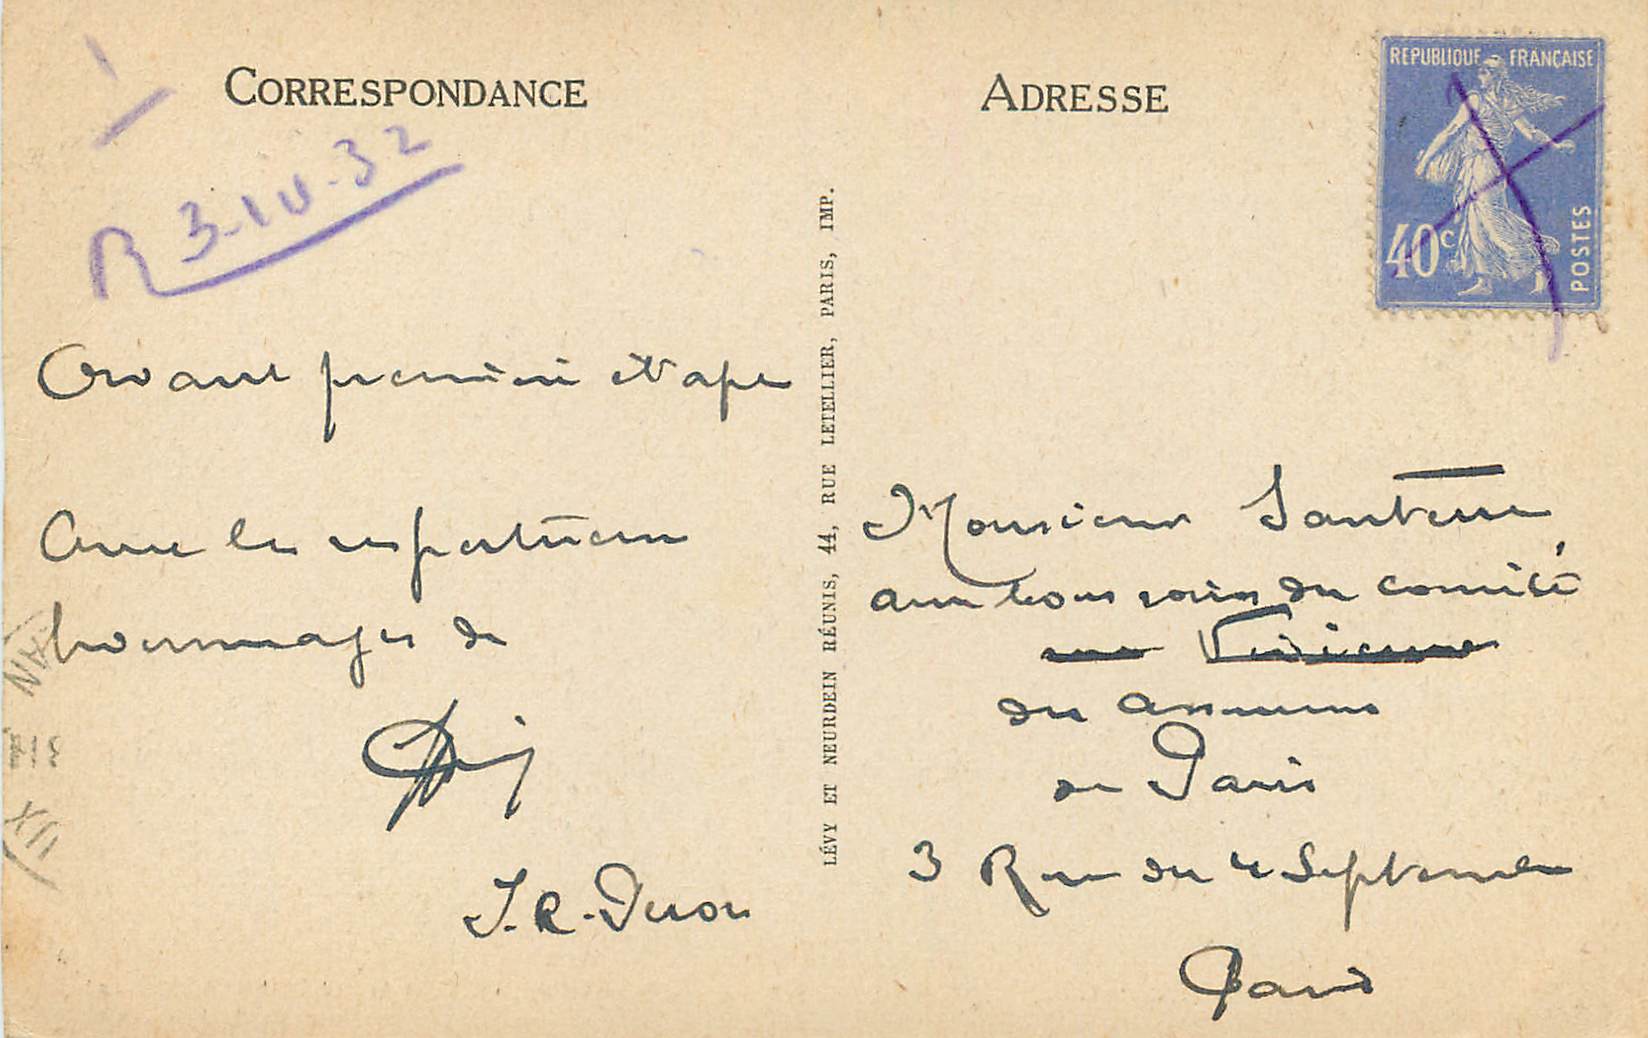 CORRESPONDANCE
R 3-IV-32
avant première étape
avec les respectueux
hommages de
J. R.
LÉVY ET NEURDEIN RÉUNIS, 44, RUE LETELLIER, PARIS, IMP.
ADRESSE
REPUBLIQUE FRANÇAISE
40c
POSTES
Monsieur Santerre
aux bons soins du comité
rue Vivienne
des
de Paris
3 Rue du 4 Septembre
Paris